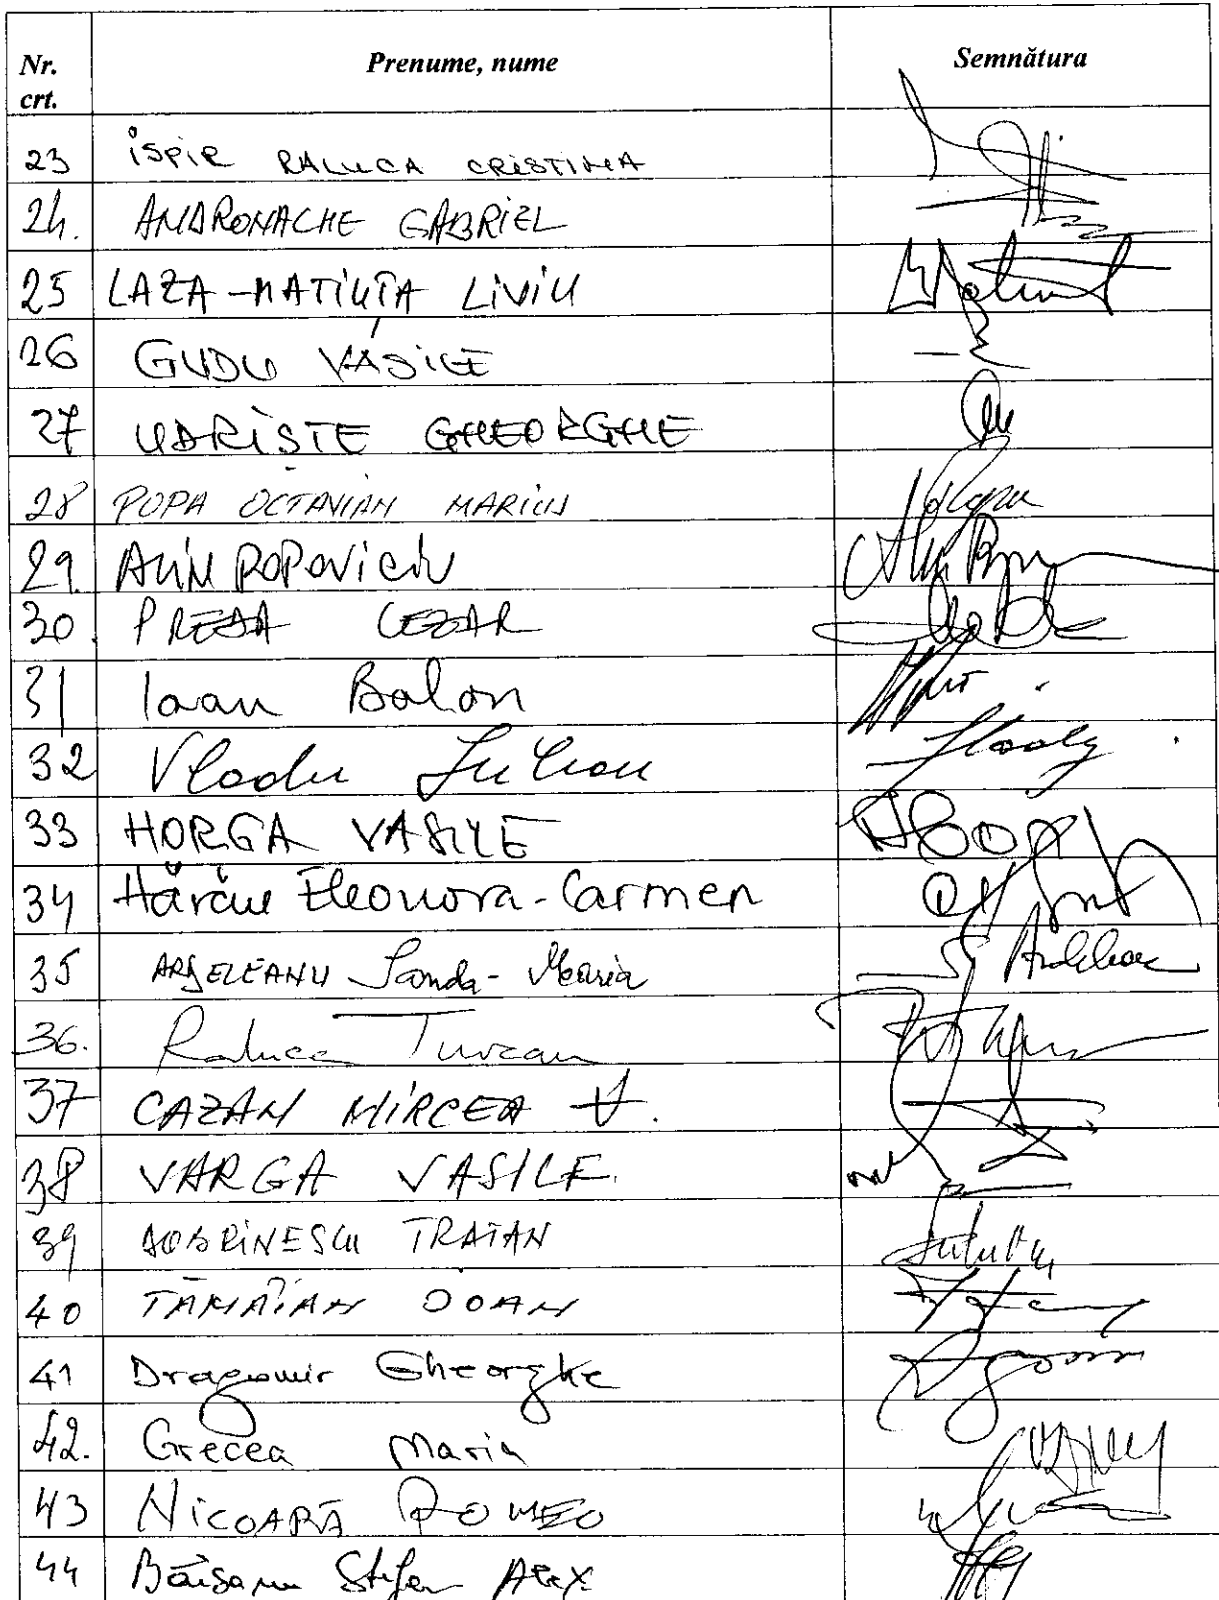 Nr. crt. Prenume, nume Semnătura
23 ISPIR RALUCA CRISTINA
24. ANDRONACHE GABRIEL
25 LAZA-MATIUȚA LIVIU
26 GUDU VASILE
27 UDRIȘTE GHEORGHE
28 POPA OCTAVIAN MARIUS
29. ALIN POPOVICIU
30. PREDA CEZAR
31 Ioan Balan
32 Vladu Iulian
33 HORGA VASILE
34 Hărău Eleonora-Carmen
35 ARDELEANU Sanda-Maria
36. Raluca Turcan
37 CAZAN MIRCEA V.
38 VARGA VASILE
39 DOBRINESCU TRAIAN
40 TĂMÂIAN IOAN
41 Dragomir Gheorghe
42. Grecea Maria
43 NICOARĂ ROMEO
44 Băișanu Ștefan Alex.